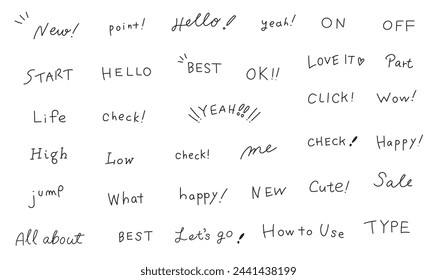 New! point! Hello! yeah! ON OFF
START HELLO BEST OK!! LOVE IT♡ Part
Life check! YEAH!!! CLICK! Wow!
High Low check! me CHECK! Happy!
jump What happy! NEW Cute! Sale
All about BEST Let's go! How to Use TYPE
shutterstock.com · 2441438199